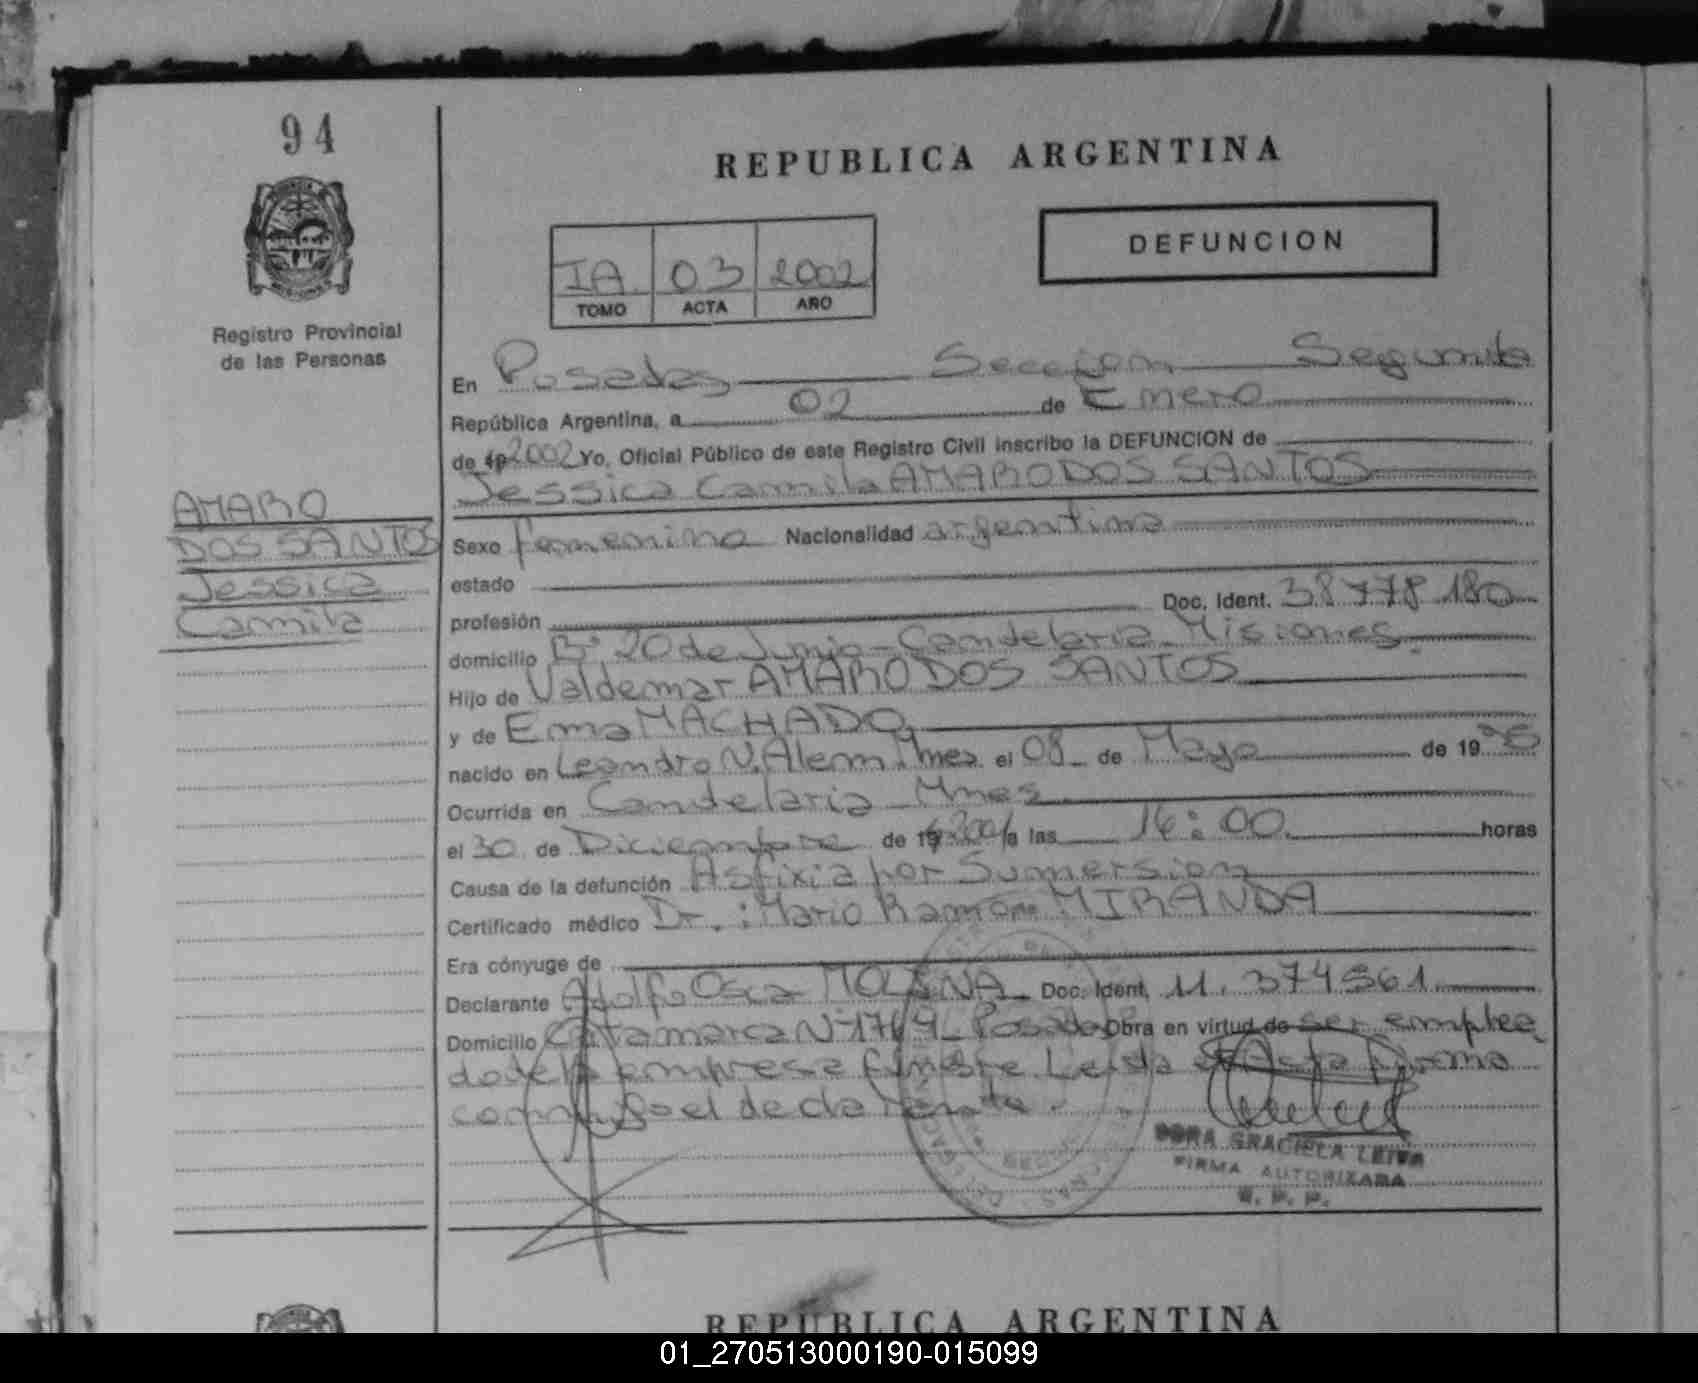 94
REPUBLICA ARGENTINA
DEFUNCION
IA 03 2002
TOMO ACTA AÑO
Registro Provincial
de las Personas
En Posadas Seccion Segunda
República Argentina, a 02 de Enero
de 19 2002 Yo, Oficial Público de este Registro Civil inscribo la DEFUNCION de
Jessica Camila AMARO DOS SANTOS
AMARO
DOS SANTOS
Jessica
Camila
Sexo femenino Nacionalidad argentina
estado
profesión Doc. Ident. 38778180
domicilio Bº 20 de Junio - Candelaria Misiones
Hijo de Valdemar AMARO DOS SANTOS
y de Ema MACHADO
nacido en Leandro N. Alem. Mnes. el 08 de Mayo de 19
Ocurrida en Candelaria Mnes
el 30 de Diciembre de 19 2001 a las 14:00 horas
Causa de la defunción Asfixia por Sumersion
Certificado médico Dr.: Mario Ramon MIRANDA
Era cónyuge de
Declarante Adolfo Osca MOLINA Doc. Ident. 11.374561
Domicilio Catamarca Nº 1769 - Posadas Obra en virtud de ser emplea
do de la empresa funebre Leida el Acta firma
conmigo el declarante.
DORA GRACIELA LEIVA
FIRMA AUTORIZADA
R. P. P.
REPUBLICA ARGENTINA
01_270513000190-015099